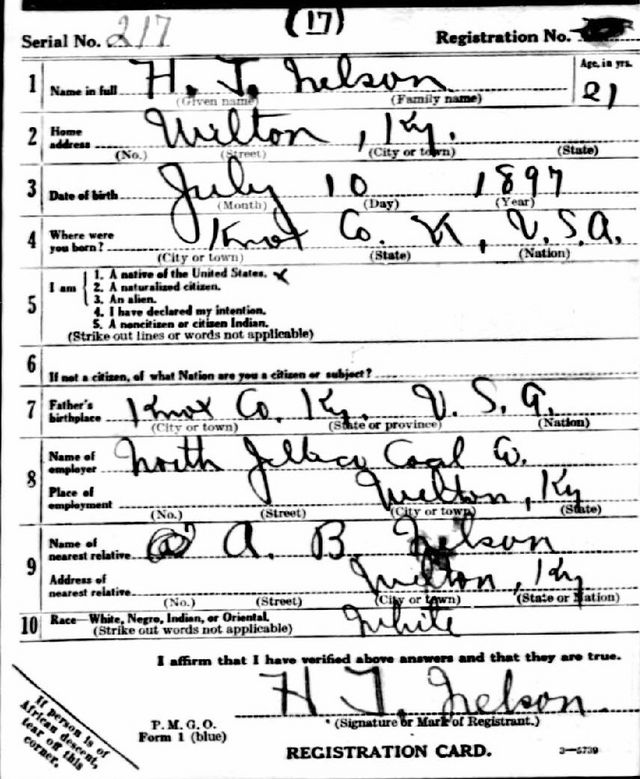 (17)
Serial No. 217 Registration No.
1 Name in full H. T. Nelson Age, in yrs. 21
(Given name) (Family name)
2 Home address Wilton, Ky.
(No.) (Street) (City or town) (State)
3 Date of birth July 10 1897
(Month) (Day) (Year)
4 Where were you born? Knox Co. K, U.S.A.
(City or town) (State) (Nation)
5 I am
1. A native of the United States. x
2. A naturalized citizen.
3. An alien.
4. I have declared my intention.
5. A noncitizen or citizen Indian.
(Strike out lines or words not applicable)
6 If not a citizen, of what Nation are you a citizen or subject?
7 Father's birthplace Knox Co. Ky. U.S.A.
(City or town) (State or province) (Nation)
8 Name of employer North Jellico Coal Co.
Place of employment Wilton, Ky
(No.) (Street) (City or town) (State)
9 Name of nearest relative A. B. Nelson
Address of nearest relative Wilton, Ky
(No.) (Street) (City or town) (State or Nation)
10 Race—White, Negro, Indian, or Oriental. White
(Strike out words not applicable)
I affirm that I have verified above answers and that they are true.
H T. Nelson.
(Signature or Mark of Registrant.)
P. M. G. O.
Form 1 (blue)
REGISTRATION CARD. 3—5739
If person is of
African descent,
tear off this
corner.